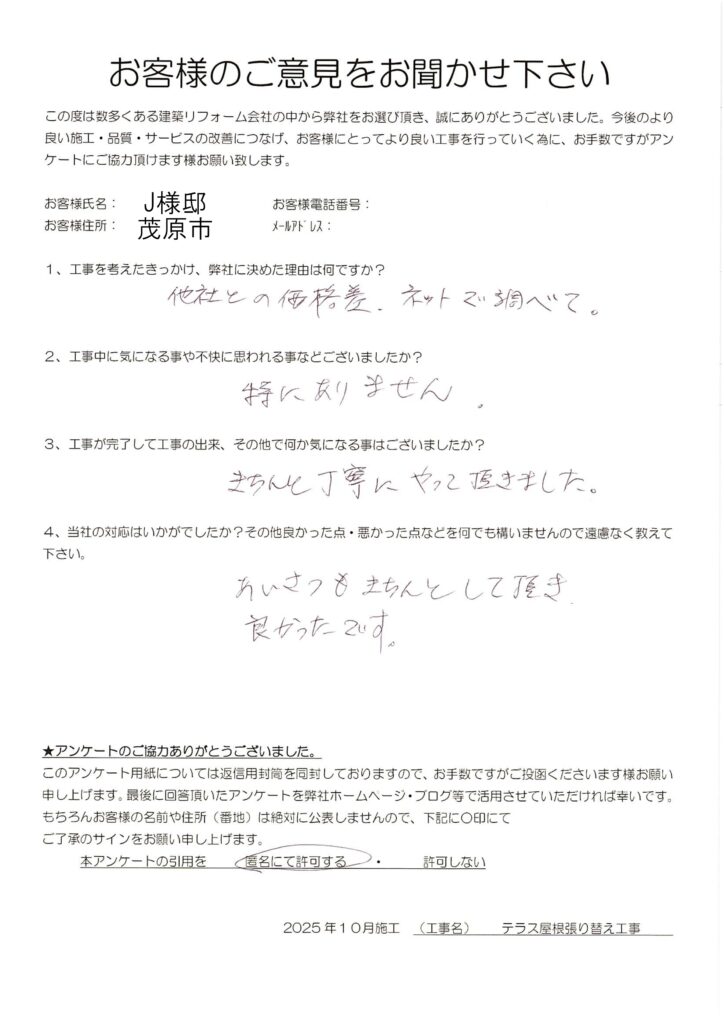 お客様のご意見をお聞かせ下さい
この度は数多くある建築リフォーム会社の中から弊社をお選び頂き、誠にありがとうございました。今後のより
良い施工・品質・サービスの改善につなげ、お客様にとってより良い工事を行っていく為に、お手数ですがアン
ケートにご協力頂けます様お願い致します。
お客様氏名： J様邸 お客様電話番号：
お客様住所： 茂原市 ﾒｰﾙｱﾄﾞﾚｽ：
１、工事を考えたきっかけ、弊社に決めた理由は何ですか？
他社との価格差、ネットで調べて。
２、工事中に気になる事や不快に思われる事などございましたか？
特にありません。
３、工事が完了して工事の出来、その他で何か気になる事はございましたか？
きちんと丁寧にやって頂きました。
４、当社の対応はいかがでしたか？その他良かった点・悪かった点などを何でも構いませんので遠慮なく教えて
下さい。
あいさつもきちんとして頂き
良かったです。
★アンケートのご協力ありがとうございました。
このアンケート用紙については返信用封筒を同封しておりますので、お手数ですがご投函くださいます様お願い
申し上げます。最後に回答頂いたアンケートを弊社ホームページ・ブログ等で活用させていただければ幸いです。
もちろんお客様の名前や住所（番地）は絶対に公表しませんので、下記に〇印にて
ご了承のサインをお願い申し上げます。
本アンケートの引用を 匿名にて許可する ・ 許可しない
2025年１０月施工 （工事名） テラス屋根張り替え工事